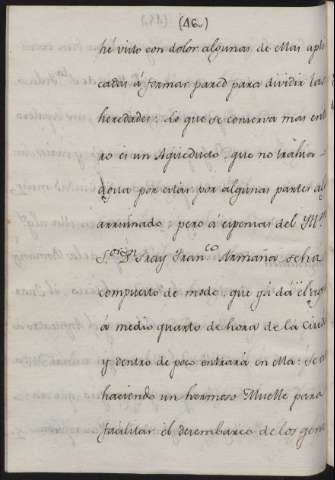 (46)
hé visto con dolor algunas de ellas apli
cadas á formar pared para dividir las
heredades: lo que se conserva mas ente
ro es un Aqueducto, que no trahia
Agua por estár por algunas partes al
arruinado; pero á expensas del Yll.
S.or D.n Fray Fran.co Armaña se ha
compuesto de modo, que yá dá el
á medio quarto de hora de la Ciud
y dentro de poco entrará en ella: Se está
haciendo un hermoso Muelle para
facilitar el desembarco de los gene